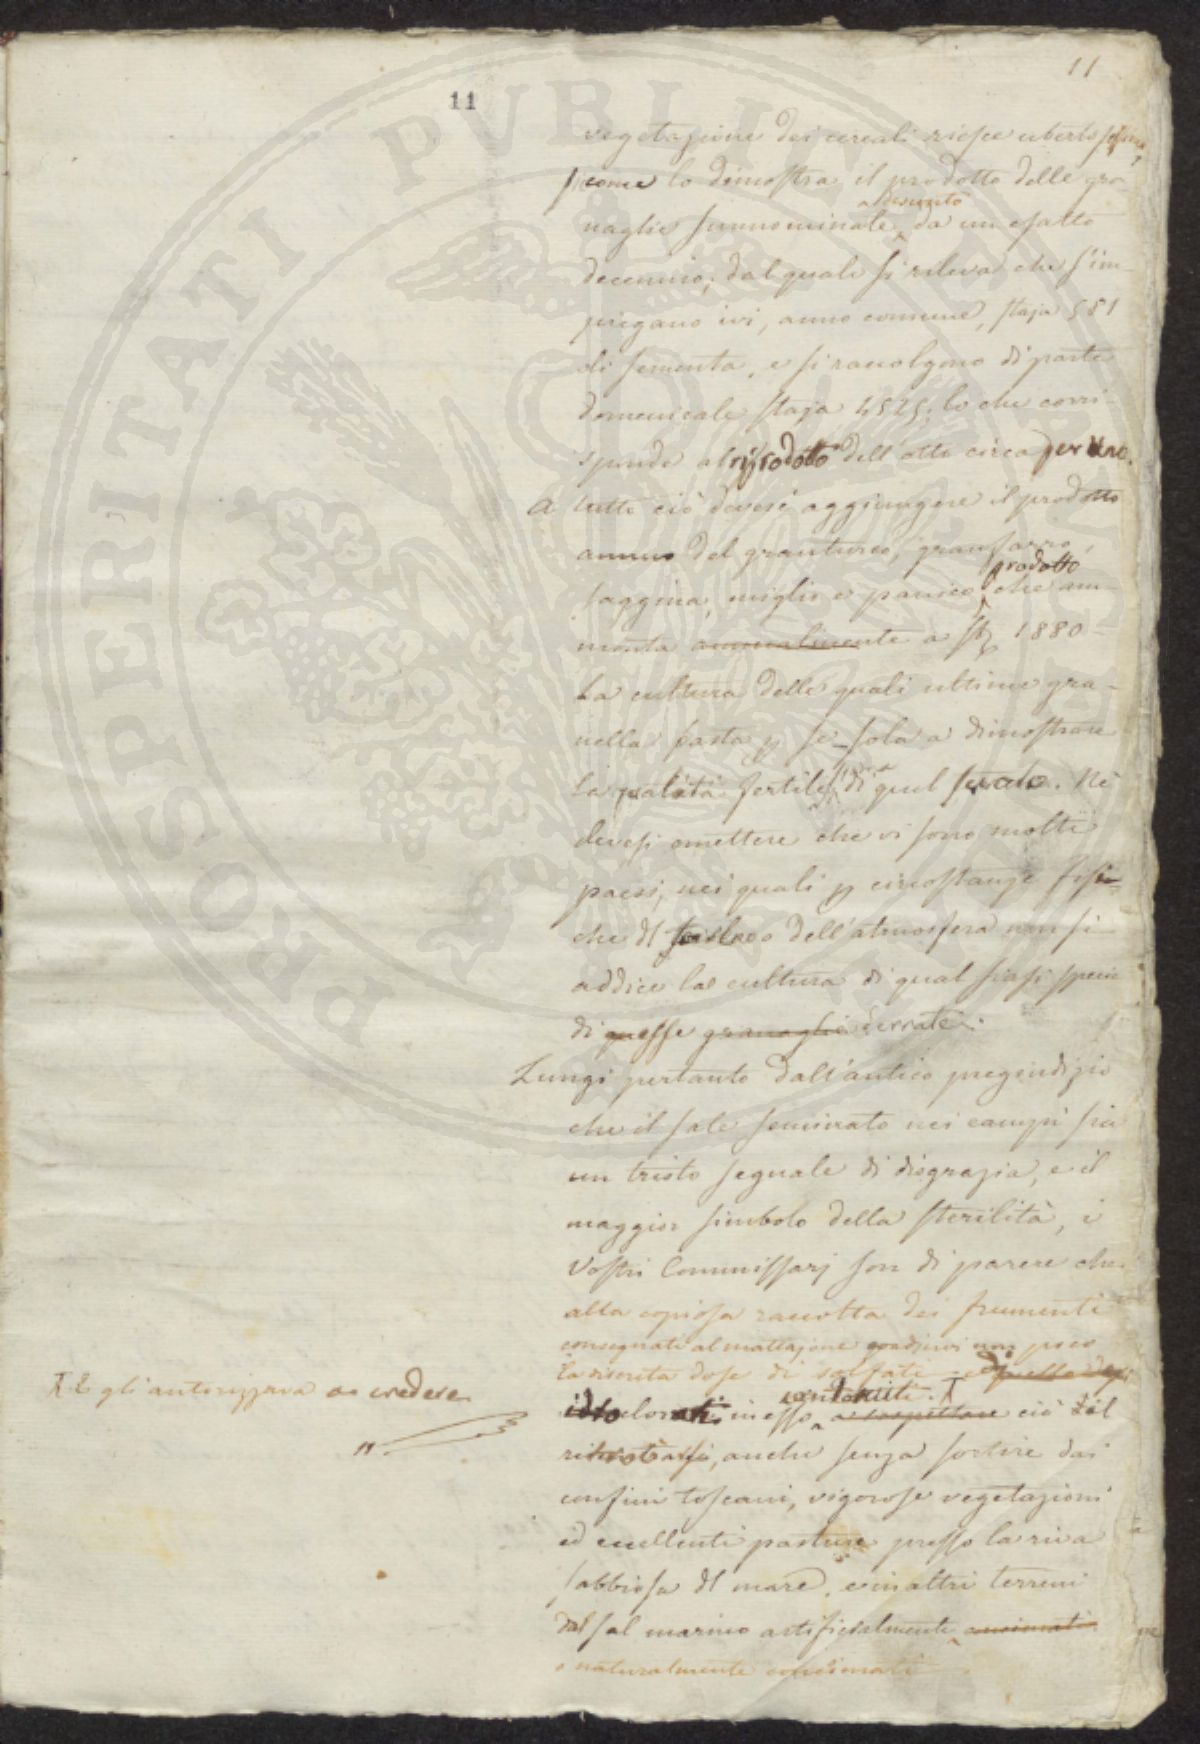 11
11
vegetazione dei cereali riesce ubertosissima,
come lo dimostra il prodotto delle gra
desunto
naglie sunnominate da un esatto
decennio; dal quale si rileva che s'im-
piegano ivi, anno comune, staja 581
di sementa, e si raccolgono di parte
domenicale staja 4525; lo che corri-
sponde al prodotto dell'otto circa per uno.
A tutto ciò devesi aggiungere il prodotto
annuo del granturco, granfarro,
prodotto
saggina, miglio e panico, che am-
monta annualmente a 1880
La cultura delle quali ultime gra-
nella basta p se sola a dimostrare
la qualità fertile di quel suolo. Nè
devesi omettere che vi sono molti
paesi, nei quali p circostanze fisi-
che dl suolo o dell'atmosfera non si
addice la cultura di qual siasi specie
di queste granaglie derrate.
Lungi pertanto dall'antico pregiudizio
che il sale seminato nei campi sia
un tristo segnale di disgrazia, e il
maggior simbolo della sterilità, i
Vostri Commissarj son di parere che
alla copiosa raccolta dei frumenti
consegnati al mattajone coadjuvi non poco
la discreta dose di solfati e di quelle
idroclorati in esso a sospettare ciò il
contenuti.
E gli autorizzava a credere
ritrovarsi, anche senza sortire dai
confini toscani, vigorose vegetazioni
ed eccellenti pasture presso la riva
sabbiosa dl mare, e in altri terreni
dal sal marino artificialmente concimati
o naturalmente concimati